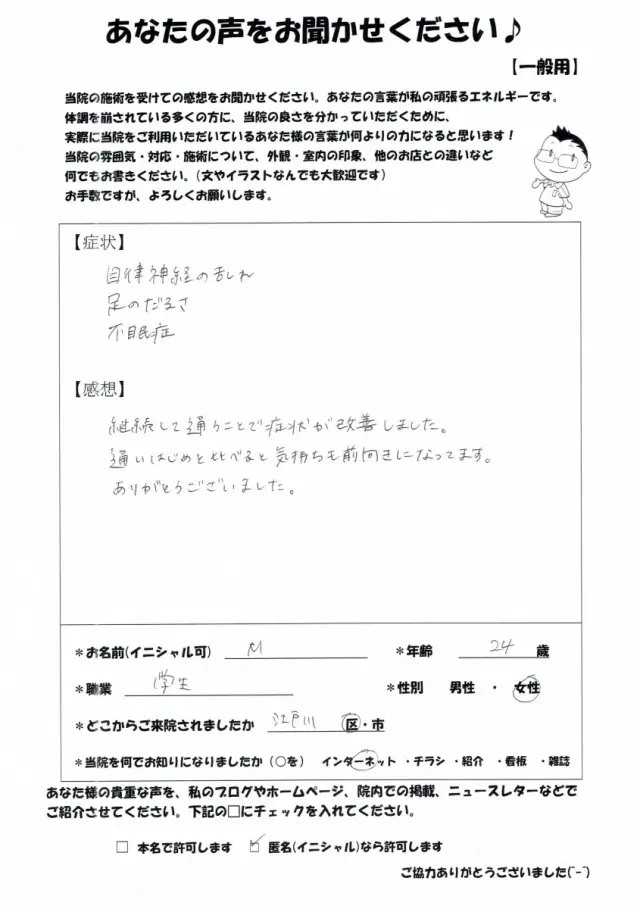 あなたの声をお聞かせください♪
【一般用】
当院の施術を受けての感想をお聞かせください。あなたの言葉が私の頑張るエネルギーです。
体調を崩されている多くの方に、当院の良さを分かっていただくために、
実際に当院をご利用いただいているあなた様の言葉が何よりの力になると思います！
当院の雰囲気・対応・施術について、外観・室内の印象、他のお店との違いなど
何でもお書きください。(文やイラストなんでも大歓迎です)
お手数ですが、よろしくお願いします。
【症状】
自律神経の乱れ
足のだるさ
不眠症
【感想】
継続して通うことで症状が改善しました。
通いはじめと比べると気持ちも前向きになってます。
ありがとうございました。
＊お名前(イニシャル可) M ＊年齢 24 歳
＊職業 学生 ＊性別 男性 ・ 女性
＊どこからご来院されましたか 江戸川 区・市
＊当院を何でお知りになりましたか（○を） インターネット ・チラシ ・紹介 ・看板 ・雑誌
あなた様の貴重な声を、私のブログやホームページ、院内での掲載、ニュースレターなどで
ご紹介させてください。下記の□にチェックを入れてください。
□ 本名で許可します ☑ 匿名(イニシャル)なら許可します
ご協力ありがとうございました(^-^)